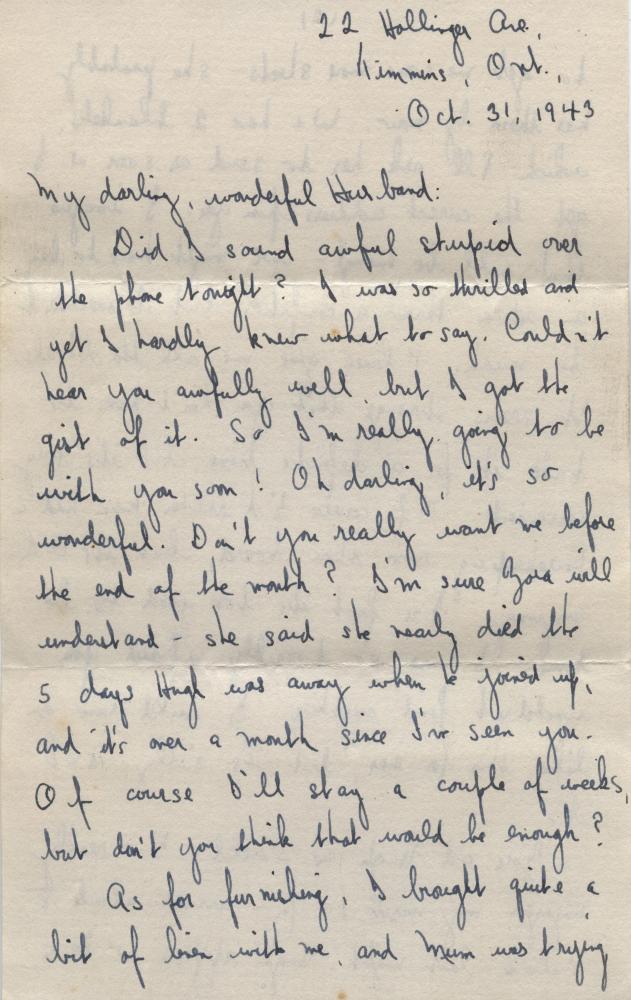 22 Hollinger Ave,
Timmins, Ont.,
Oct. 31, 1943
My darling, wonderful Husband:
Did I sound awful stupid over
the phone tonight? I was so thrilled and
yet I hardly knew what to say. Couldn't
hear you awfully well but I got the
gist of it. So I'm really going to be
with you soon! Oh darling, it's so
wonderful. Don't you really want me before
the end of the month? I'm sure will
understand - she said she nearly died the
5 days Hugh was away when he joined up,
and it's over a month since I've seen you.
Of course I'll stay a couple of weeks,
but don't you think that would be enough?
As for furnishing, I brought quite a
bit of linen with me, and Mum was trying